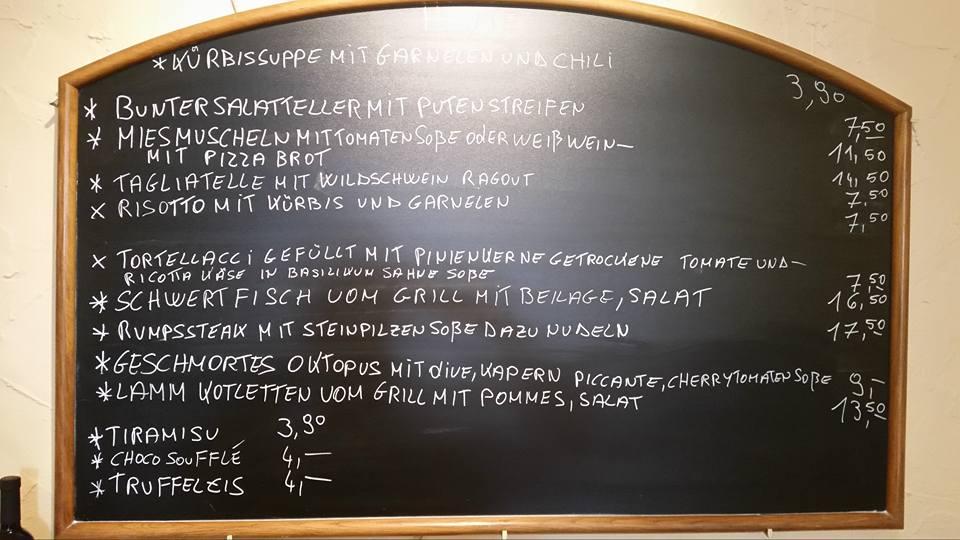 *KÜRBISSUPPE MIT GARNELEN UND CHILI 3,90
* BUNTER SALATTELLER MIT PUTENSTREIFEN 7,50
* MIESMUSCHELN MIT TOMATENSOßE ODER WEIßWEIN—
MIT PIZZA BROT 11,50
* TAGLIATELLE MIT WILDSCHWEIN RAGOUT 14,50
x RISOTTO MIT KÜRBIS UND GARNELEN 7,50
7,50
x TORTELLACCI GEFÜLLT MIT PINIENKERNE GETROCKENE TOMATE UND—
RICOTTA KÄSE IN BASILIKUM SAHNE SOßE 7,50
*SCHWERTFISCH VOM GRILL MIT BEILAGE, SALAT 16,50
*RUMPSSTEAK MIT STEINPILZENSOßE DAZU NUDELN 17,50
*GESCHMORTES OKTOPUS MIT OLIVE, KAPERN PICCANTE, CHERRYTOMATENSOßE 9,—
*LAMM KOTLETTEN VOM GRILL MIT POMMES, SALAT 13,50
*TIRAMISU 3,90
*CHOCO SOUFFLÉ 4,—
*TRUFFELEIS 4,—